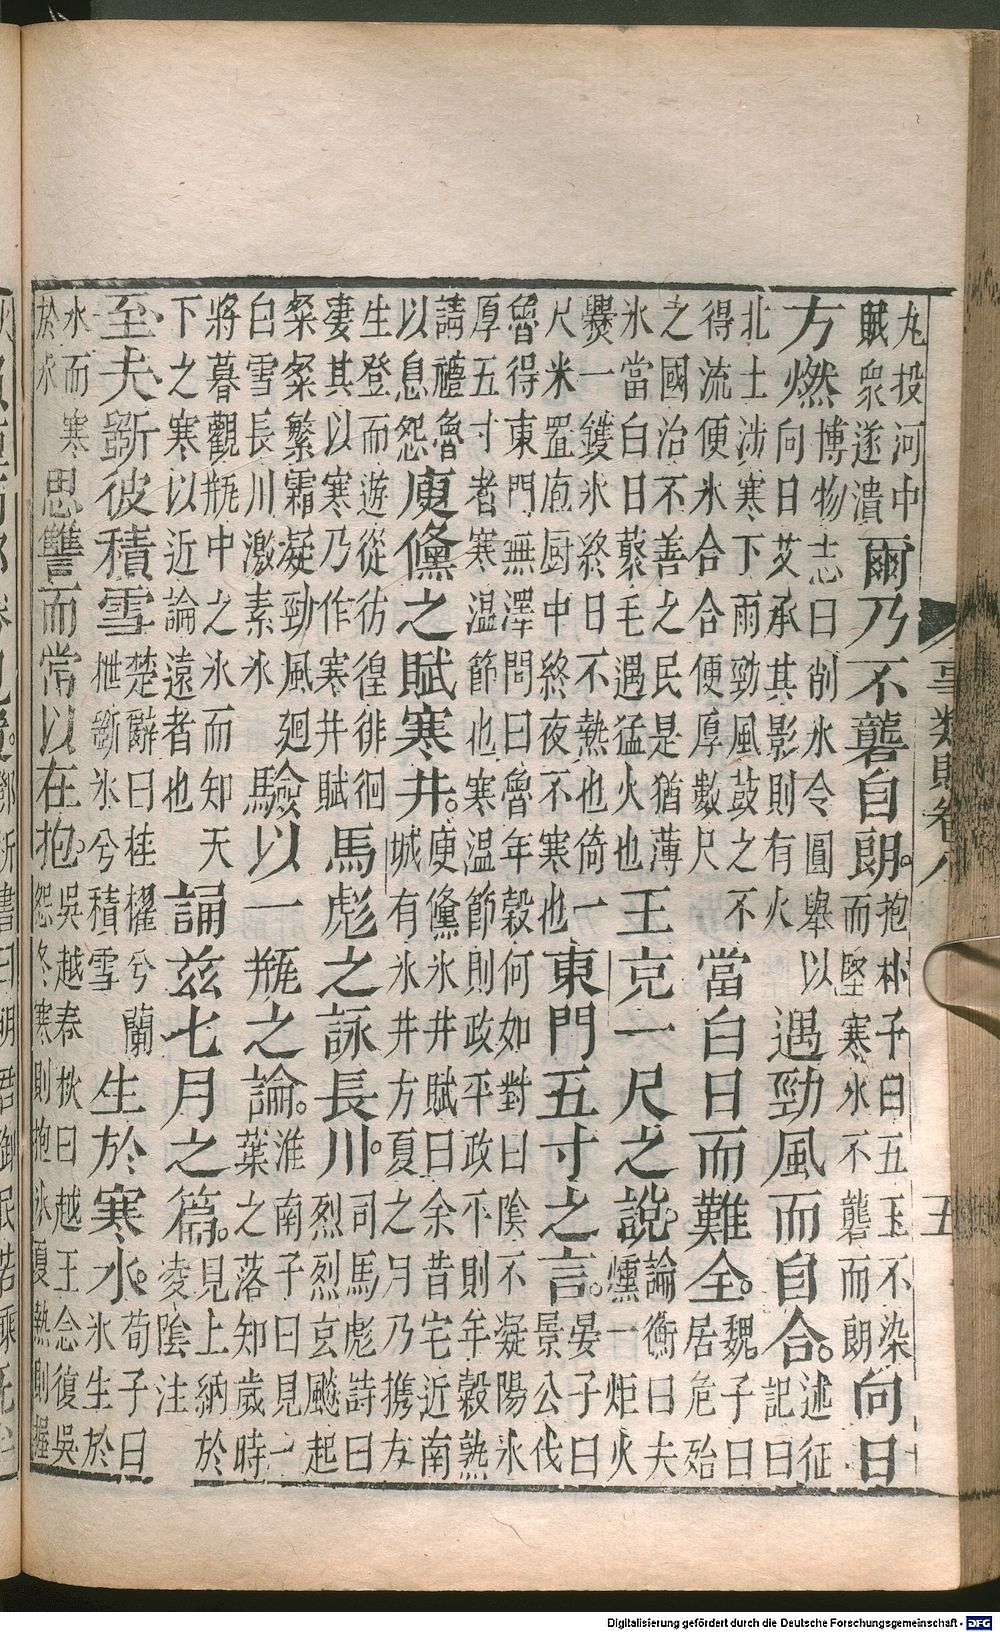 丸投河中
賦衆遂潰
爾乃不礱自朗。
抱朴子曰五玉不染
而堅寒氷不礱而朗
向日
方燃
博物志曰削氷令圓舉以
向日艾承其影則有火
遇勁風而自合。
述征
記曰
北土涉寒下雨勁風鼓之不
得流便氷合合便厚數尺
當白日而難全。
魏子曰
居危殆
之國治不善之民是猶薄
氷當白日蘂毛遇猛火也
王充一尺之說。
論衡曰夫
燻一炬火
爨一鑊氷終日不熱也倚一
尺米置庖厨中終夜不寒也
東門五寸之言。
晏子曰
景公伐
魯得東門無澤問曰魯年穀何如對曰陰不凝陽氷
厚五寸者寒温節也寒温節則政平政平則年穀熟
請禮魯
以息怨
庾儵之賦寒井。
庾儵氷井賦曰余昔宅近南
城有氷井方夏之月乃携友
生登而遊從彷徨徘徊
凄其以寒乃作寒井賦
馬彪之詠長川。
司馬彪詩曰
烈烈玄飈起
粲粲繁霜凝勁風廻
白雪長川激素氷
驗以一瓶之論。
淮南子曰見一
葉之落知歲時
將暮觀瓶中之氷而知天
下之寒以近論遠者也
誦茲七月之篇。
見上納於
凌陰注
至夫斵彼積雪
楚辭曰桂櫂兮蘭
枻斵氷兮積雪
生於寒水。
荀子曰
氷生於
水而寒
於水
思讐而常以在抱。
吳越春秋曰越王念復吳
怨冬寒則抱氷夏熱則握
事類賦卷八
五
Digitalisierung gefördert durch die Deutsche Forschungsgemeinschaft - DFG